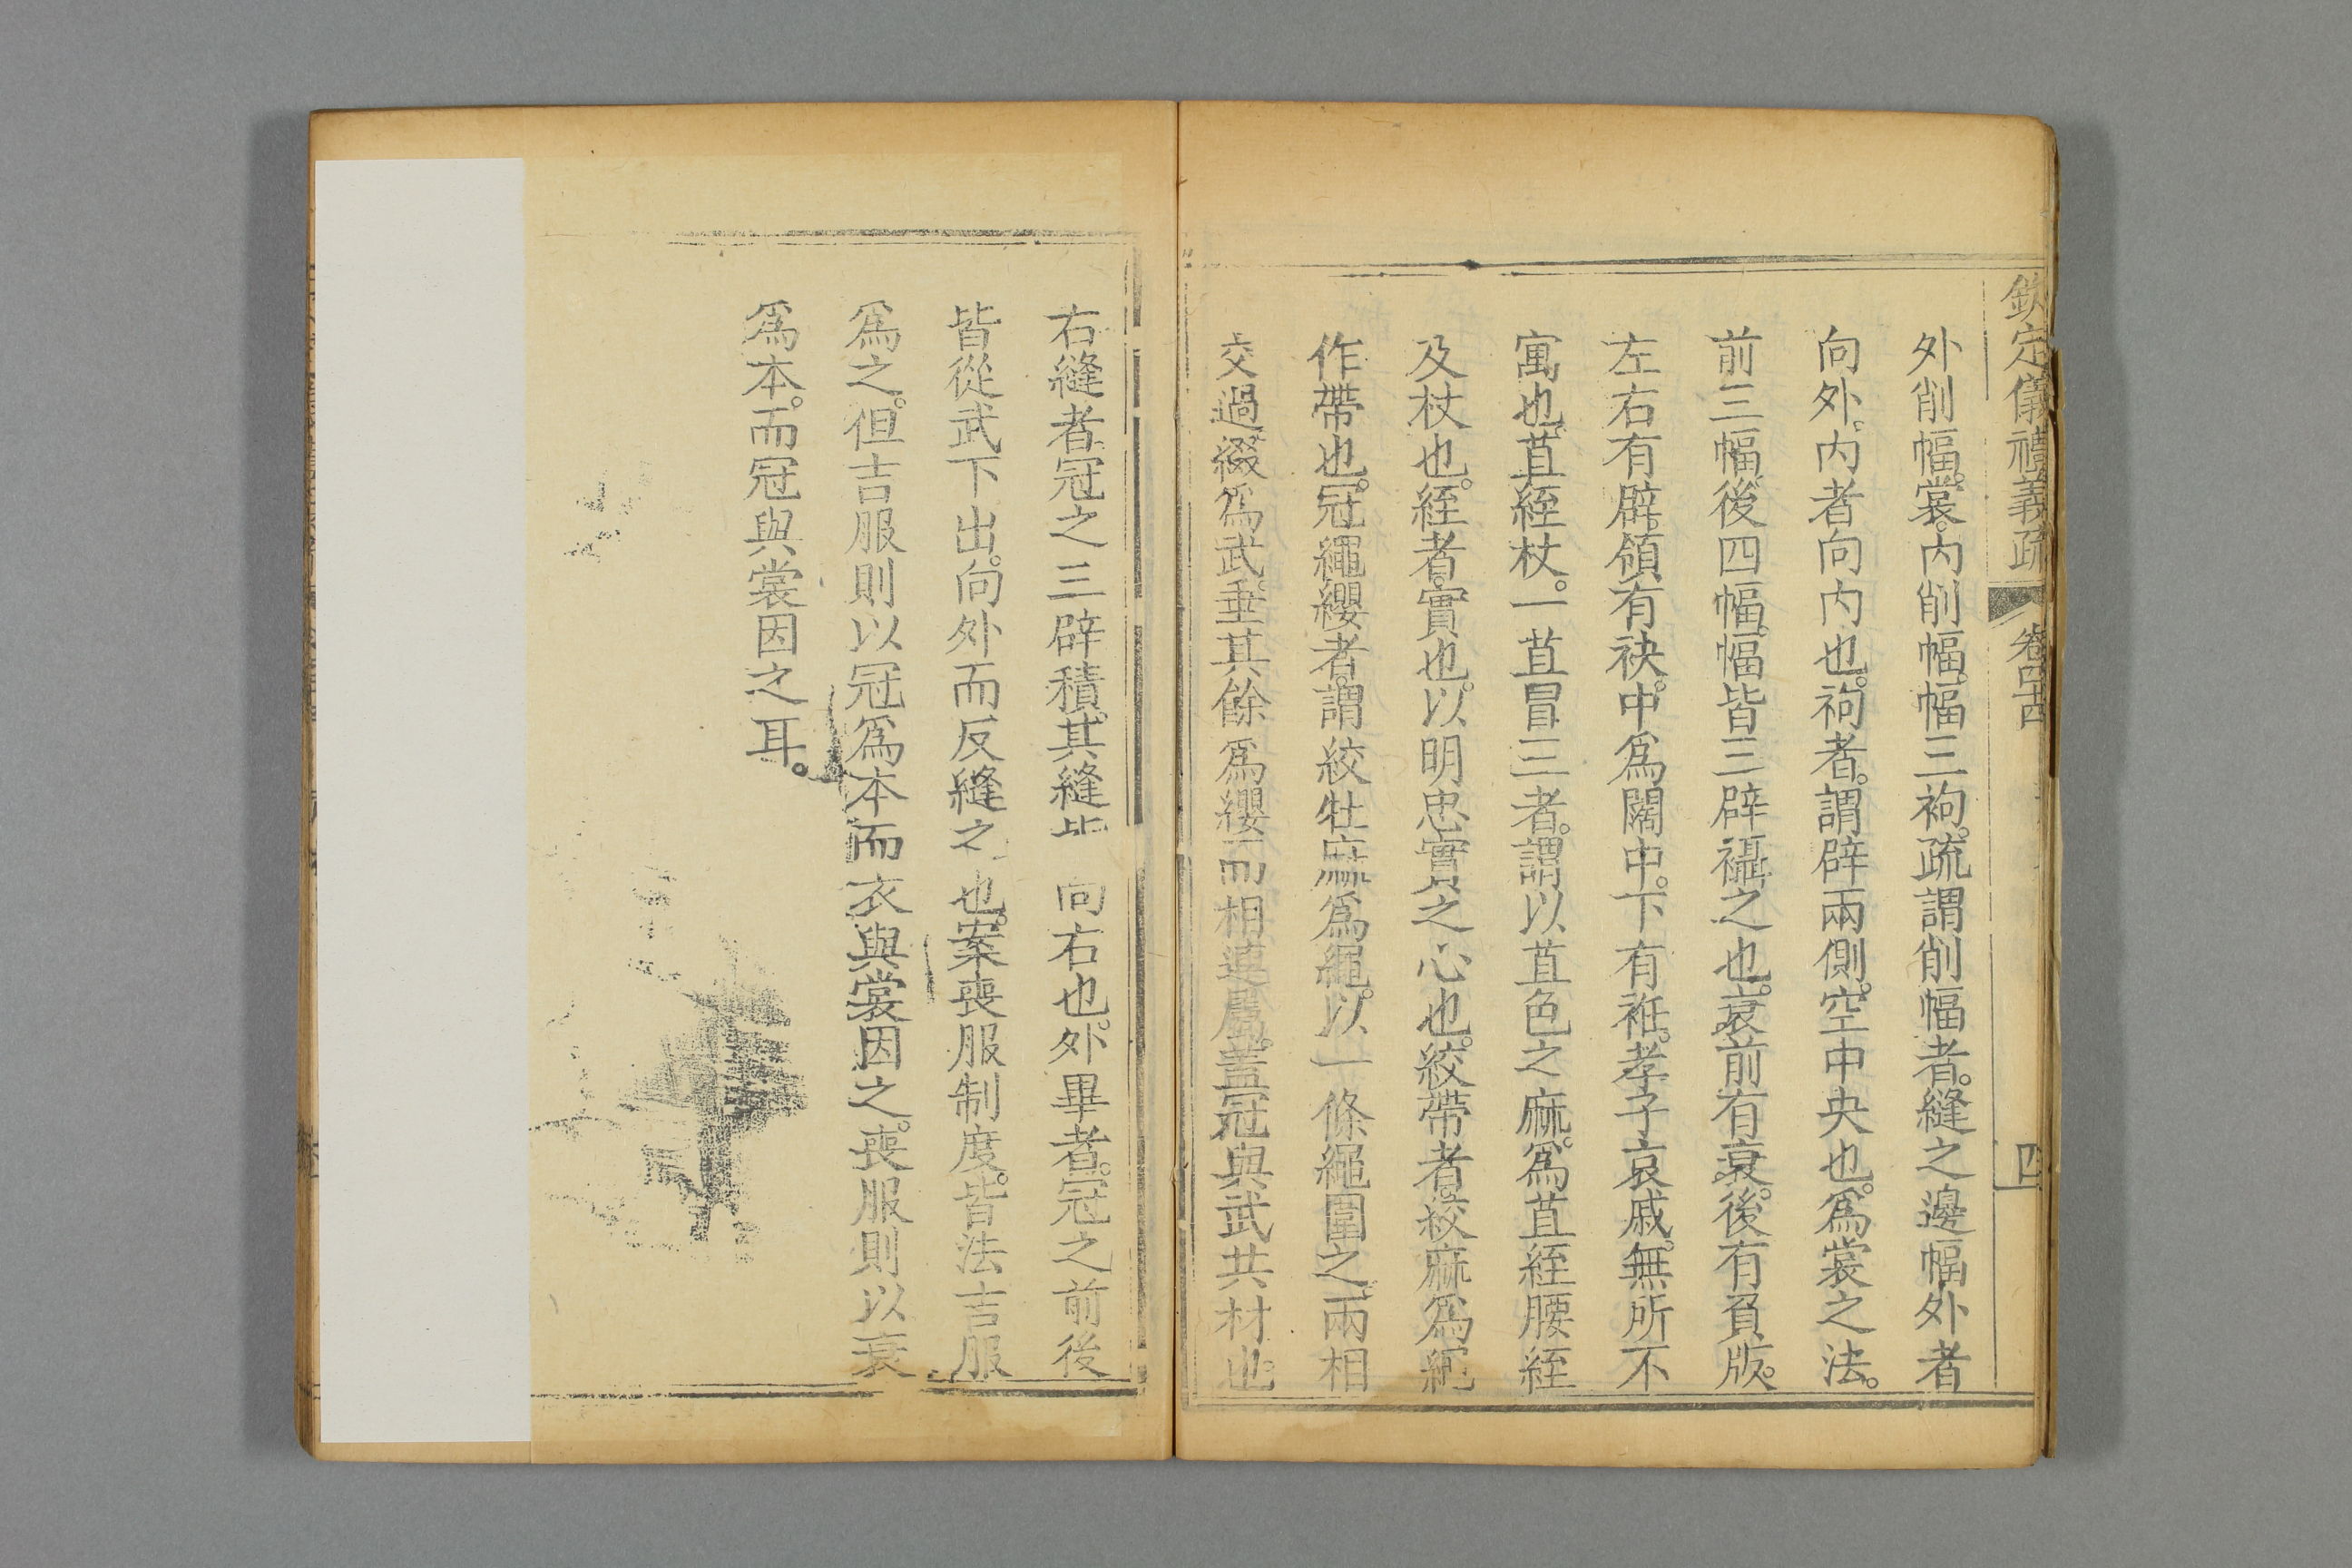 欽定儀禮義疏 卷四十四
四
外削幅。裳。內削幅。幅三袧。疏謂削幅者。縫之邊幅外者
向外。內者向內也。袧者。謂辟兩側。空中央也。爲裳之法。
前三幅。後四幅。幅皆三辟襵之也。衰前有衰。後有負版。
左右有辟。領有袂。中爲闊中。下有袵。孝子哀戚。無所不
寓也。苴絰杖。一苴冒三者。謂以苴色之麻。爲苴絰腰絰
及杖也。絰者。實也。以明忠實之心也。絞帶者。絞麻爲繩
作帶也。冠繩纓者。謂絞牡麻爲繩。以一條繩圍之。兩相
交過綴爲武。垂其餘爲纓而相連屬。蓋冠與武共材也。
右縫者冠之三辟積。其縫皆向右也。外畢者。冠之前後
皆從武下出。向外而反縫之也。案喪服制度。皆法吉服
爲之。但吉服則以冠爲本而衣與裳因之。喪服則以衰
爲本。而冠與裳因之耳。